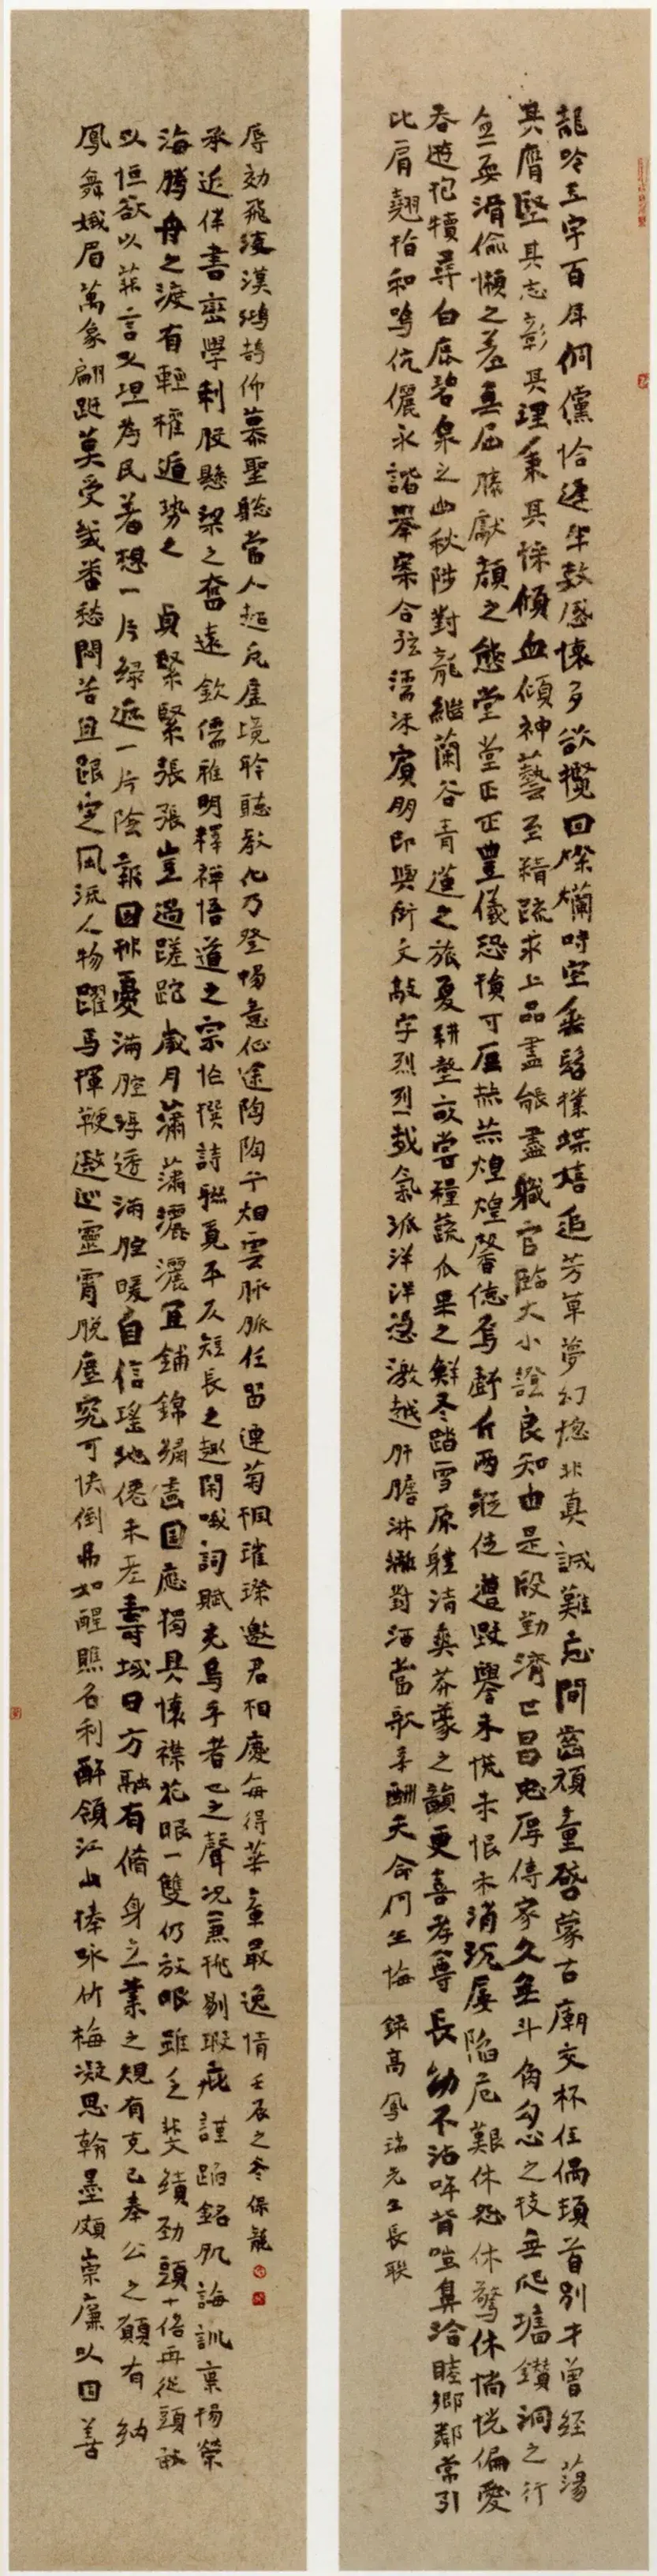 龍吟玉宇百年倜儻恰逢年穀感懷多欲攬回燦爛時空無髫撲蝶嬉追芳草夢幻總非真誠難忘問齒頑童啓蒙古廟交杯佳偶項首別才曾經蕩
其膺堅其志彰其理秉其傾血傾神藝至精疏求上品盡能盡職官臨大小證良知由是殷勤濟世昌忠厚傳家久無斗角勾心之技無爬牆鑽洞之行
無耍滑偷懶之羞無屈膝獻顏之態堂堂正正豐儀恐積可風赫赫煌煌馨德焉辭斤兩縱使遭毀譽未慌未恨未消沉屢陷危艱休怨休驚休惝恍偏愛
春遊犯犢尋白鹿碧泉之幽秋陟對龍繼蘭谷青蓮之旅夏耕壟畝嘗種蔬瓜果之鮮冬踏雪原體清爽莽蒙之韻更喜孝尊長幼不沾哞背喧鼻洽睦鄉鄰常引
比肩翹指和鳴伉儷永諧舉案合弦濡沫賓朋即興衍文敲字烈烈哉氣派洋洋溢激越肝膽淋漓對酒當歌幸酬天命何生悔 錄高鳳瑞先生長聯
鳳舞娥眉萬象翩躚莫受幾番愁悶苦且跟定風流人物躍馬揮鞭遨遊靈霄脫塵究可快倒弗如醒瞧名利醉領江山捧咏竹梅凝思翰墨頗崇廉以固善
以恒欲以菲言以坦為民著想一片綠遮一片陰報國排憂滿腔淳透滿腔暖自信瑤池僊未老壽域日方融有脩身立業之規有克己奉公之願有納
海騰舟之渡有輕權遁勢之貞緊緊張張豈過蹉跎歲月瀟瀟灑灑宜鋪錦繡畫圖應獨具懷襟花眼一雙仍放眼雖乏斐績勁頭十倍再從頭敢
承近伴書巒學刺股懸梁之奮遠欽儒雅明釋禪悟道之宗忙撰詩聯覓平仄短長之趣閑哦詞賦充烏乎者也之聲況兼挑剔瑕疵謹蹈銘肌誨訓稟楊榮
辱効飛凌漠鴻鵠仰慕聖聰當人超凡虛境聆聽教化乃登暢意仙途陶陶乎烟雲脈脈任留連菊桐璀璨邀君相慶每得華章最逸情 壬辰之冬保龍